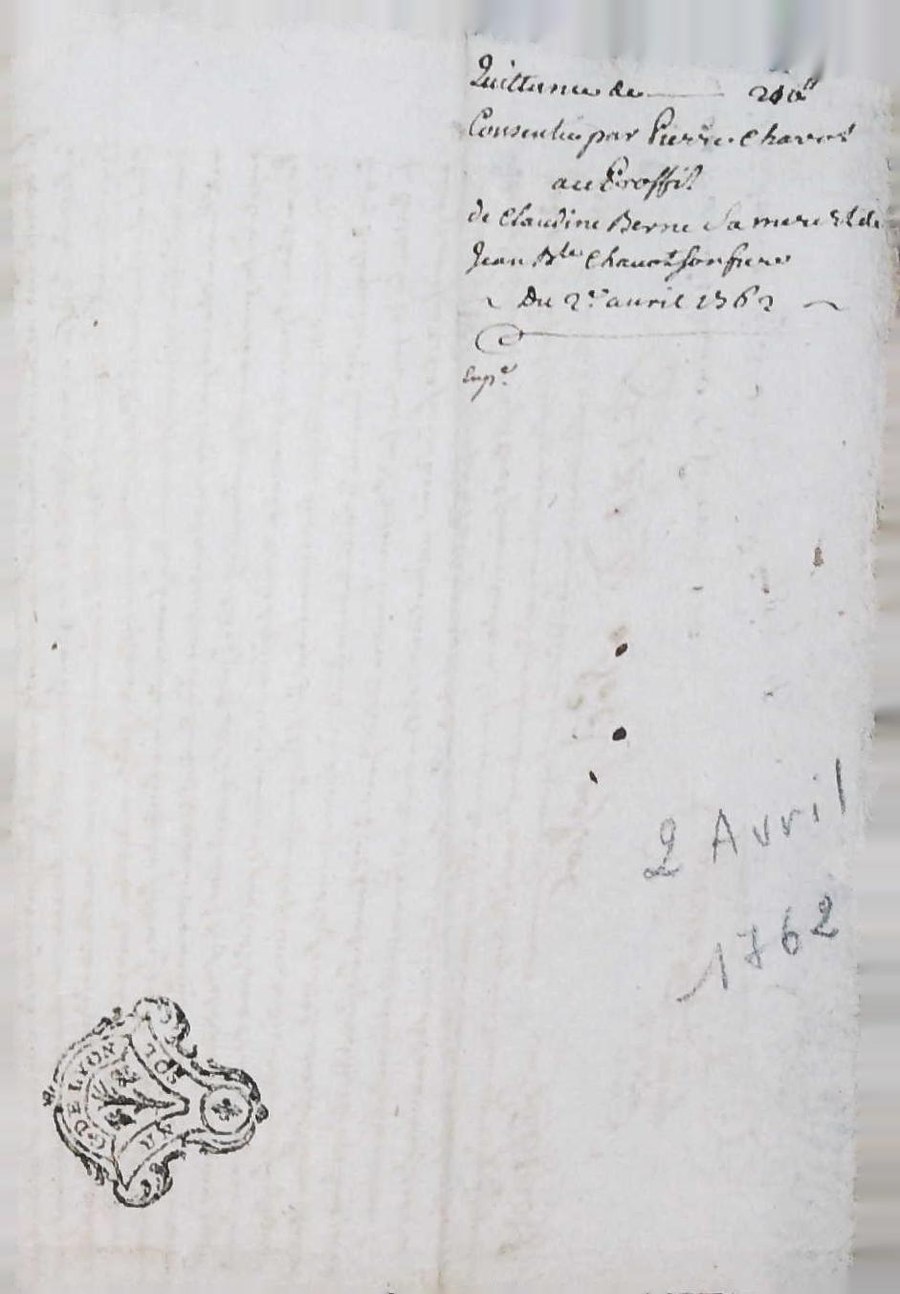 Quittance de — 210#
Consentie par Pierre Chavot
au Proffit
de Claudine Berne Sa mere Et de
Jean Bte Chavot Son frere
Du 2e. avril 1762
Exp.e
2 Avril
1762
G DE LYON